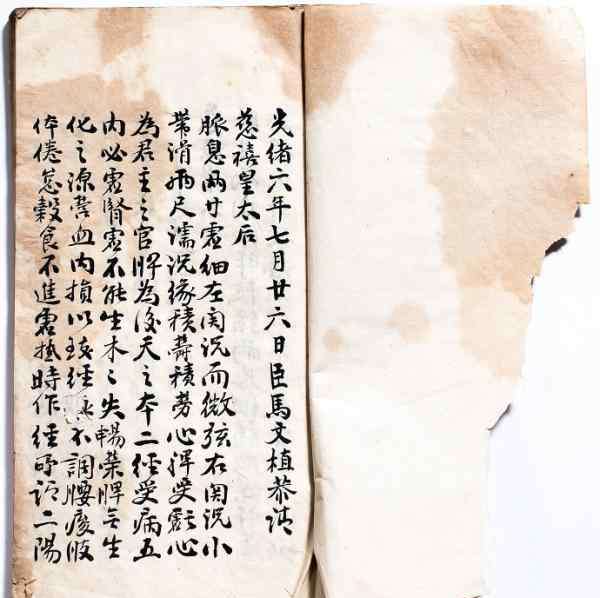 光緒六年七月廿六日臣馬文植恭請
慈禧皇太后
脈息兩寸虛細左関沉而微弦右関沉小
帶滑兩尺濡沉緣積欝積勞心脾受虧心
為君主之官脾為後天之本二經受病五
内必虛腎虛不能生木〻失暢榮脾乏生
化之源營血内損以致經脉不調腰痠肢
体倦怠穀食不進虛热時作經所謂二陽